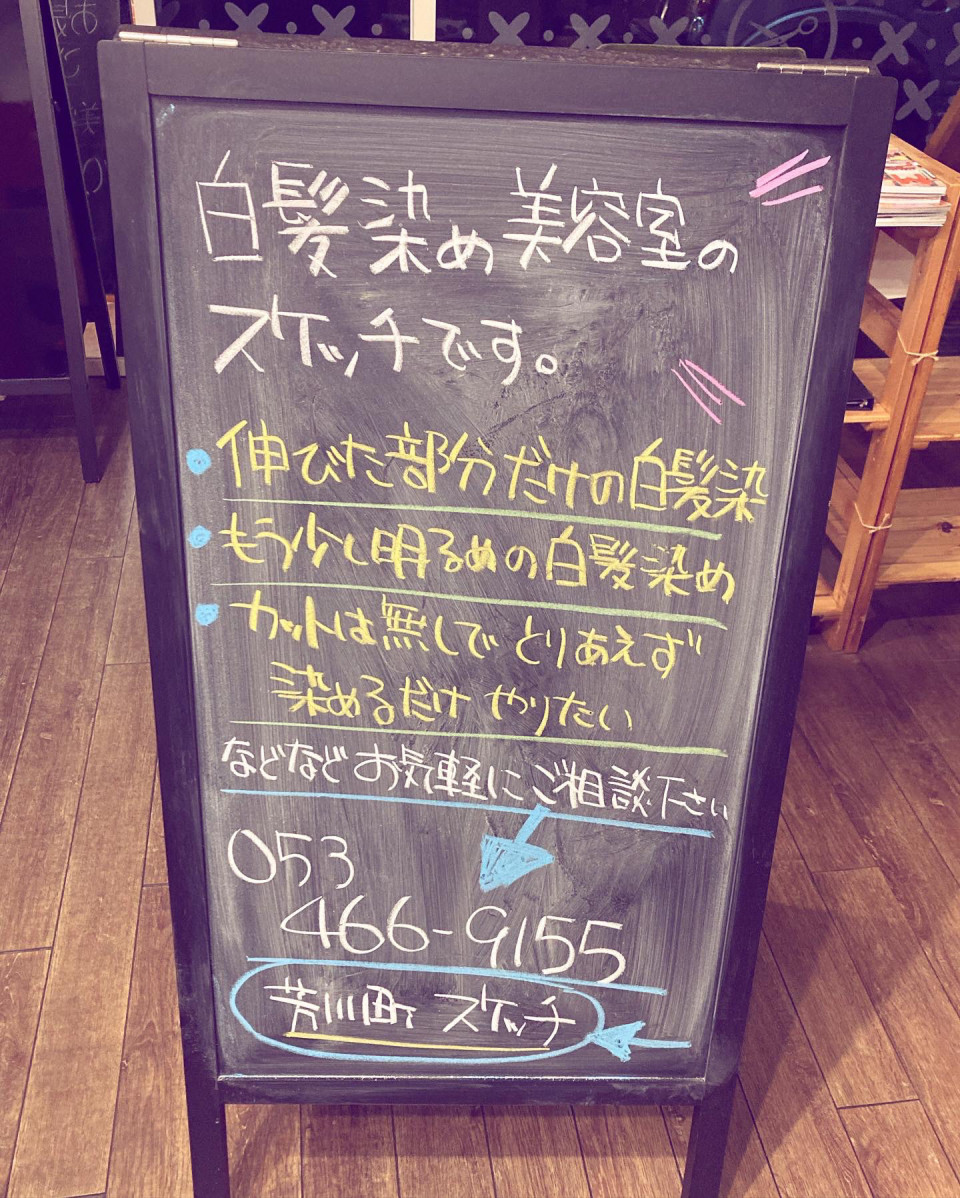 白髪染め美容室の
スケッチです。
• 伸びた部分だけの白髪染
• もう少し明るめの白髪染め
• カットは無しで とりあえず
染めるだけ やりたい
などなど お気軽にご相談下さい
053
466-9155
芳川町 スケッチ